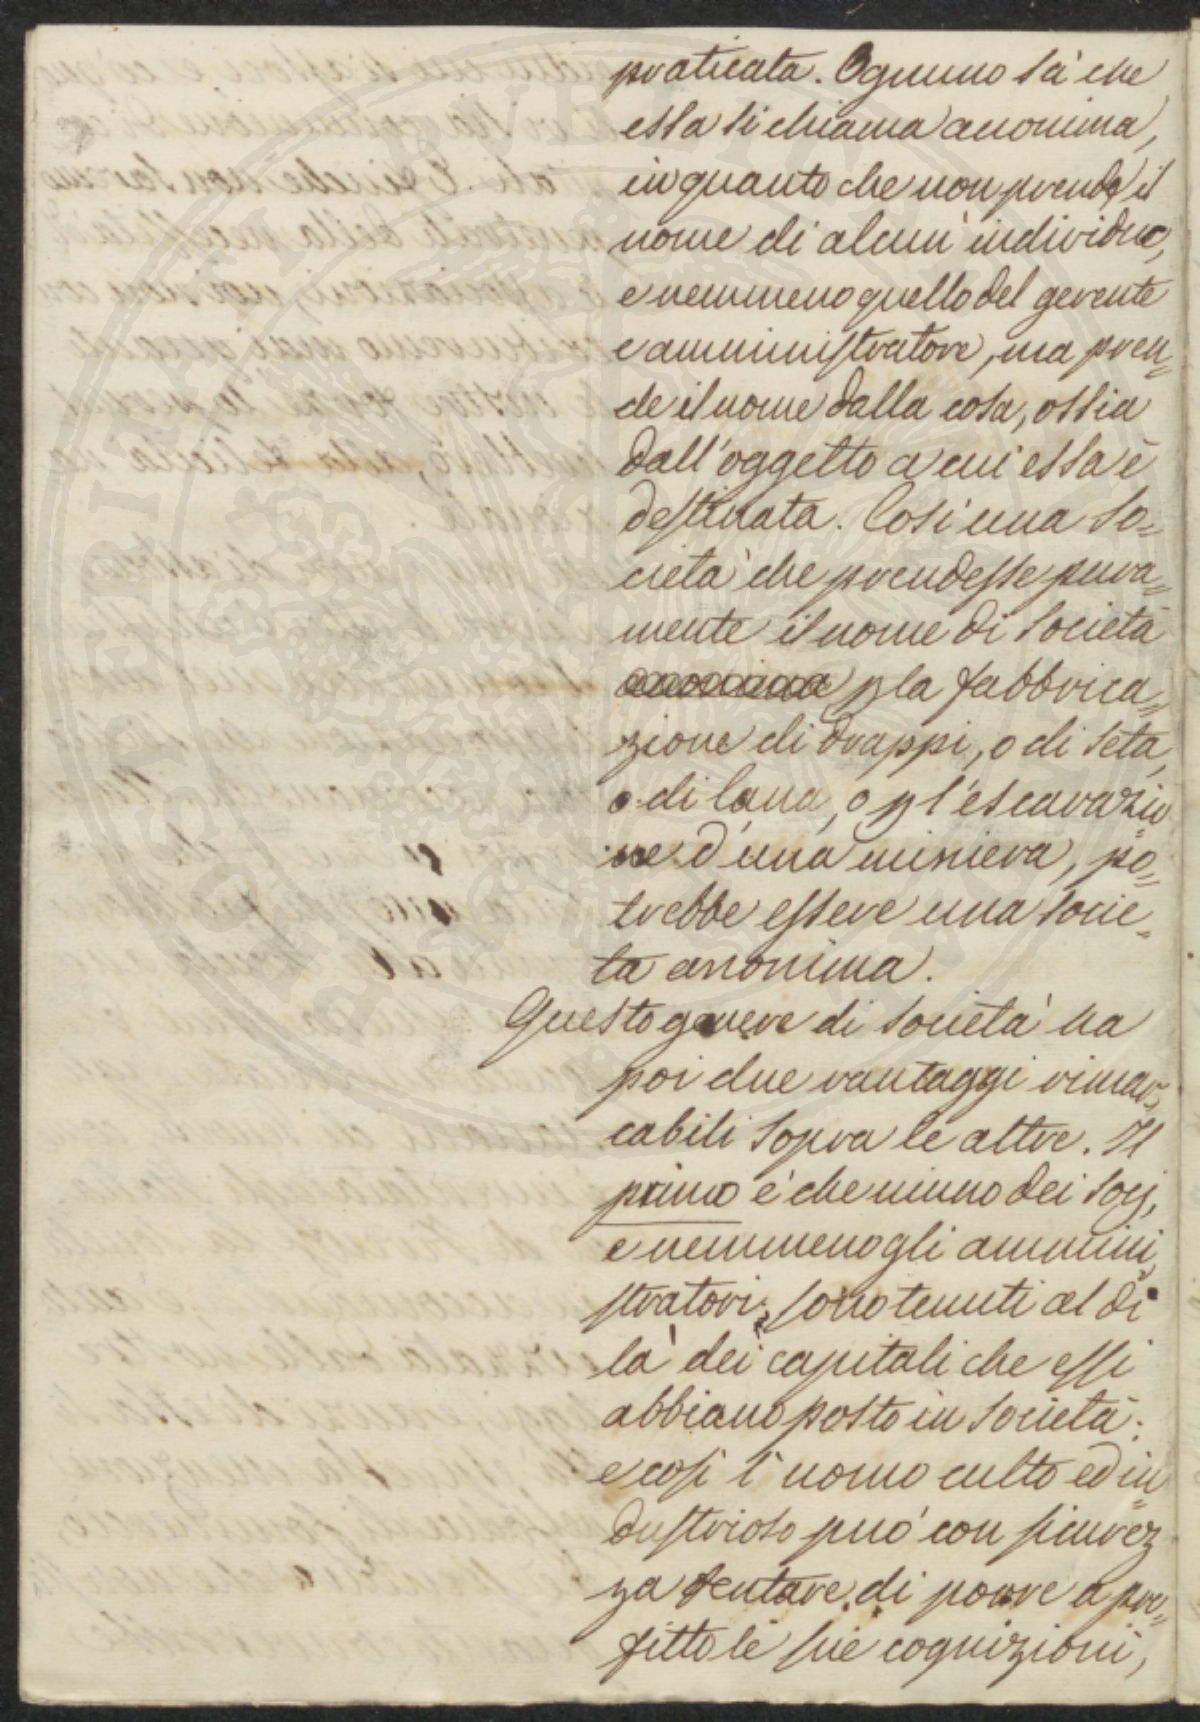 praticata. Ognuno sà che
essa si chiama anonima,
in quanto che non prende il
nome di alcun' individuo,
e nemmeno quello del gerente
e amministratore, ma pren=
de il nome dalla cosa, ossia
dall'oggetto a cui essa è
destinata. Così una So=
cietà che prendesse pura=
mente il nome di Società
anonima p la fabbrica=
zione di drappi, o di seta,
o di lana, o p l'escavazio
ne d'una miniera, po=
trebbe essere una Socie=
tà anonima.
Questo genere di Società ha
poi due vantaggi rimar=
cabili sopra le altre. Il
primo è che niuno dei Socj,
e nemmeno gli ammini
stratori, sono tenuti al di
là dei capitali che essi
abbiano posto in Società;
e così l'uomo culto ed in=
dustrioso può con sicurez
za tentare di porre a pro=
fitto le sue cognizioni,